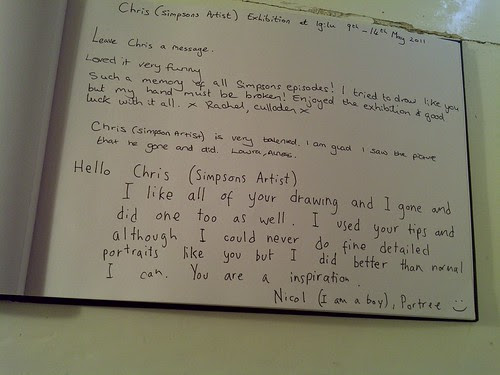 Chris (Simpsons Artist) Exhibition at Ig:lu 9th - 14th May 2011
Leave Chris a message.
Loved it very funny
Such a memory of all Simpsons episodes! I tried to draw like you
but my hand must be broken! Enjoyed the exhibition & good
luck with it all. x Rachel, culloden x
Chris (Simpson Artist) is very talented. I am glad I saw the
that he gone and did. Laura,
Hello Chris (Simpsons Artist)
I like all of your drawing and I gone and
did one too as well. I used your tips and
although I could never do fine detailed
portraits like you but I did better than normal
I can. You are a inspiration.
Nicol (I am a boy), Portree